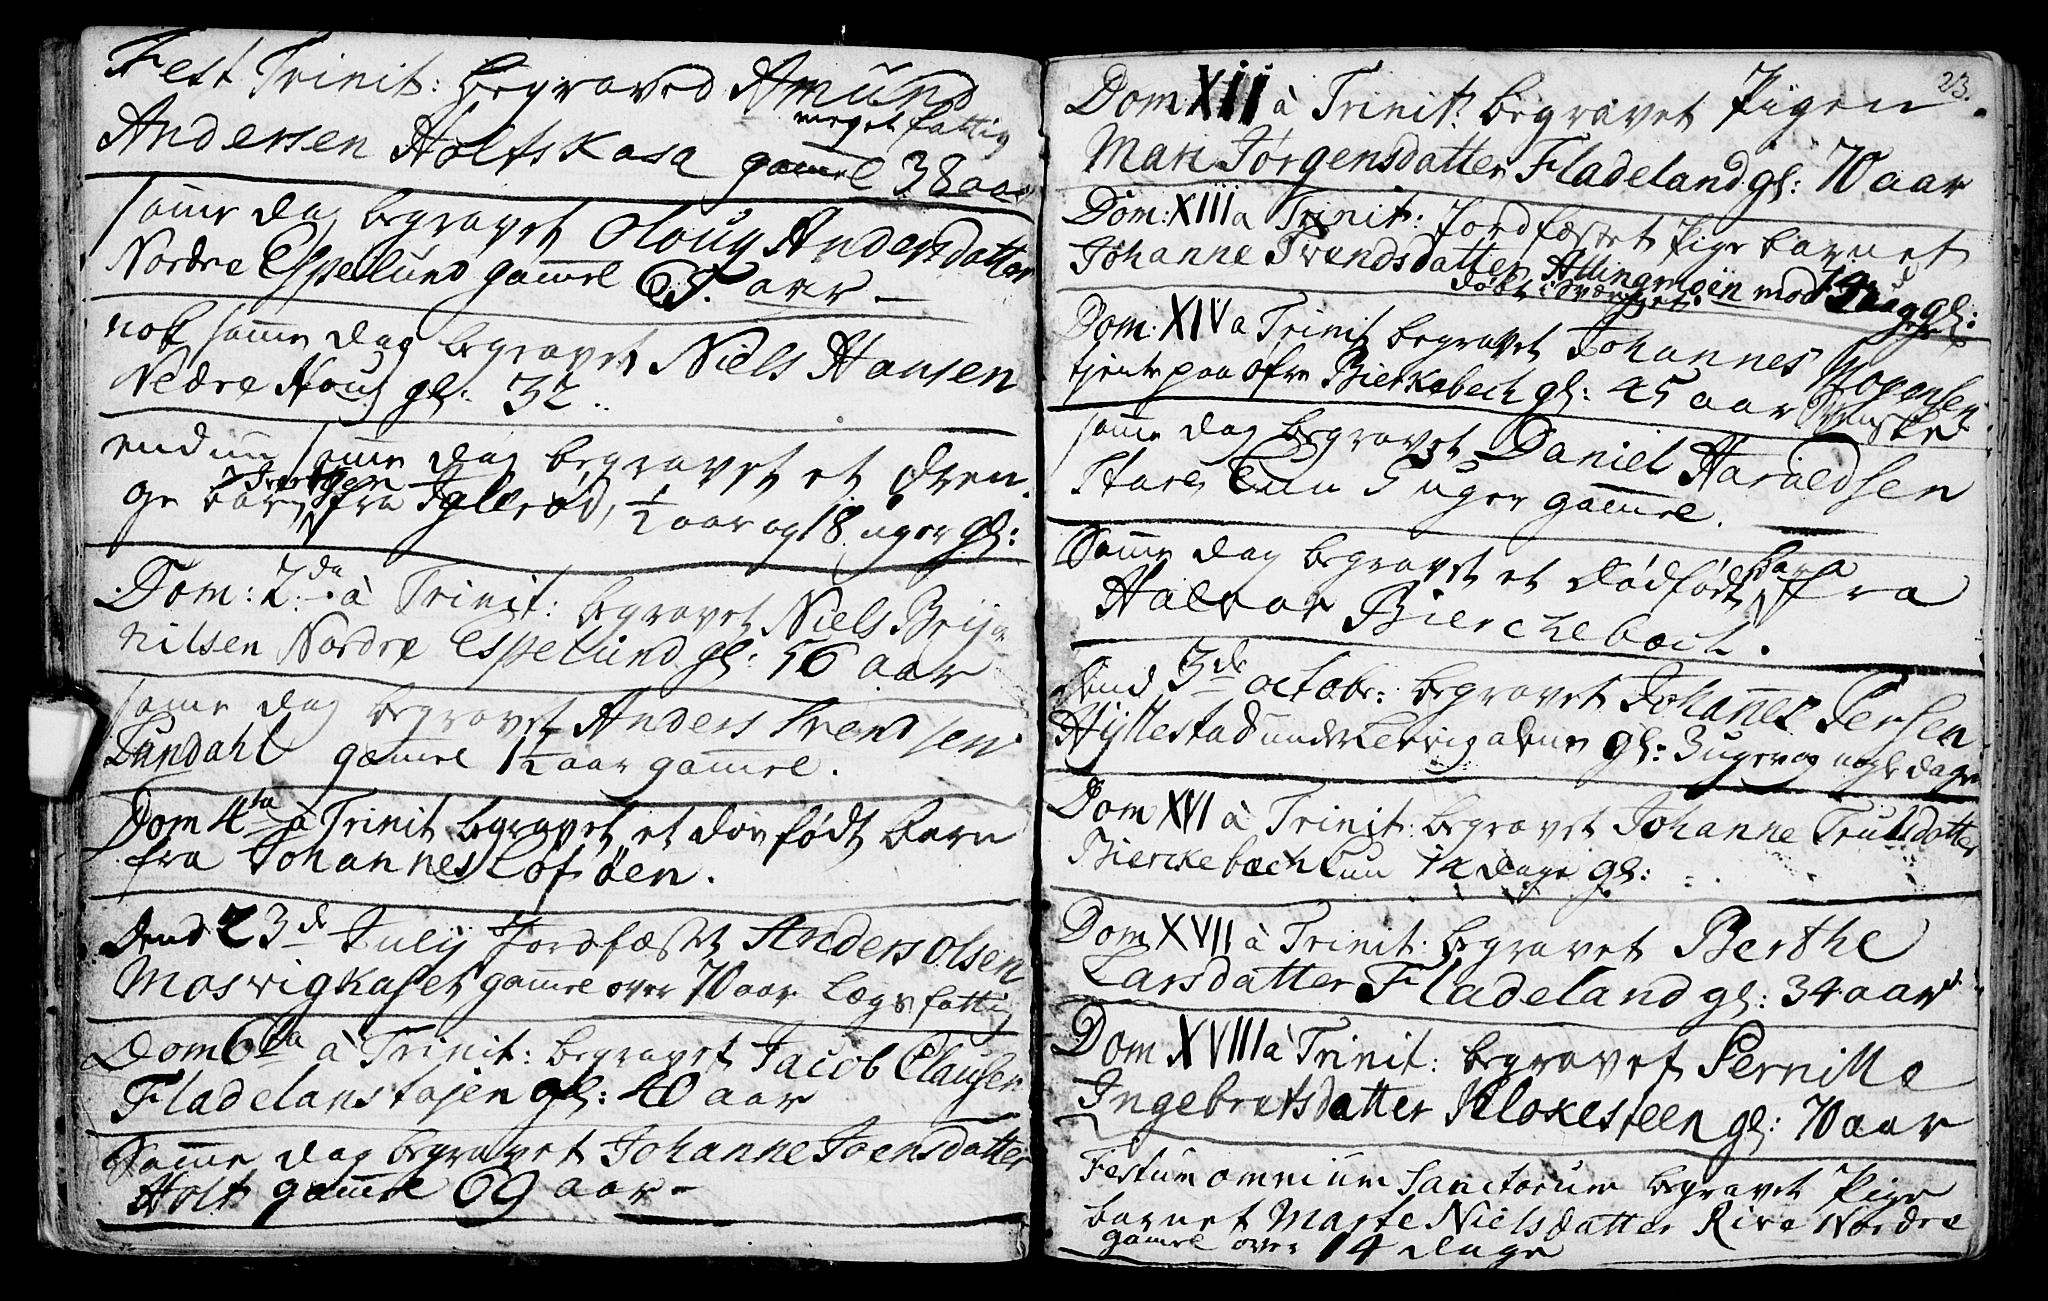 Fest Trinit: begraved Amund
Andersen Holtskasa meget fattig gamel 38 aar
same dag begravet Oloug Andersdatter
Nordre Espelund gamel 65. aar
nok same dag begravet Niels Hansen
Nedre Houg gl: 32..
endnu same dag begravet et dren-
ge barn Iver fra Iglerød, ½ aar og 18 uger gl:
Dom: 2da à Trinit: begravet Niels Bryn
nilsen Nordre Espelund gl: 56 aar
same dag begravet Anders Svendsen
Lundahl gamel 1½ aar gamel.
Dom 4ta à Trinit begravet et død født barn
fra Johannes Lofsøen.
Dend 23d Julij Jordfæstet Anders Olsen
Mosvigkaset gamel over 70 aar Lægs fattig
Dom 6ta à Trinit: begravet Jacob Clausen
Fladelanstajen gl: 40 aar
Same dag begravet Johanne Joensdatter
Holt gamel 69 aar
23.
Dom XII à Trinit: begravet Pigen
Mari Jørgensdatter Fladeland gl: 70 aar
Dom: XIII a Trinit: Jordfæstet Pige barnet
Johanne Svendsdatter Allingmoen
døbt i Sverrig
Dom: XIV a Trinit begravet Johannes Mogensen
tjente paa øfre Bierkebech gl: 45 aar Svensked
same dag begravet Daniel Haraldsen
Hare kun 5 uger gamel.
Same dag begravet et dødfødt barn fra
Halvor Bierchebæch.
dend 3de octobr: begravet Johannes Persen
Hyllestad gl: 3 uger og nogle dage
Dom XVI à Trinit: begravet Johanne Trulsdatter
Bierckebæch kun 14 dage gl:
Dom XVII à Trinit: begravet Berthe
Larsdatter Fladeland gl: 34 aar
Dom XVIII à Trinit: begravet Pernille
Ingebretsdatter Klokesteen gl: 70 aar
Festum omnium Sanctorum begravet Pige
barnet Marte Nielsdatter Rive Nordre
gamel over 14 dage